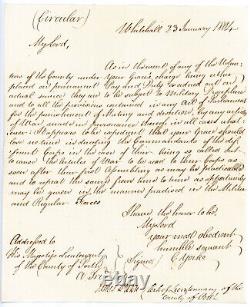 (Circular)
Whitehall 23 January 1804
My Lord,
As in the event of any of the Volun
teers of the County under Your Grace's charge being either
placed on permanent Pay and Duty or called out on
actual service they are to be subject to Military Discipline
and to all the provisions contained in any Act of Parliament
for the punishment of Mutiny and desertion, by any articles
of War made in pursuance thereof in all cases what
ever it appears to be expedient that your Grace should
lose no time in desiring the Commandants of the dif
ferent Corps in the case of their being so called out
the Articles of War to be read to their Corps as
soon after their first Assembling as may be practicable
and to repeat the same from time to time as opportunity
may be given in the manner practised in the Militia
and Regular Forces
I have the honor to be
My Lord
your most obedient
humble servant
Signed C Yorke
Addressed to
His Majesty's Lieutenant
of the County of
of the
County of